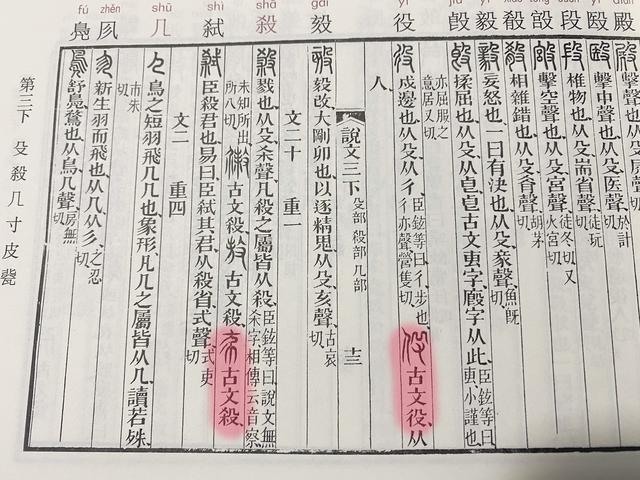 殿
殹
段
㲈
殽
毅
𣪘
役
㱾
殺
弒
几
㐱
鳧
擊中聲也从殳医聲於計切
椎物也从殳耑省聲徒玩切
擊空聲也从殳宮聲徒冬切又火宮切
相雜錯也从殳肴聲胡茅切
妄怒也一曰有決也从殳豙聲魚既切
揉屈也从殳从皀皀古文叀字廏字从此臣鉉等曰叀小謹也
亦屈服之意居又切
戍邊也从殳从彳臣鉉等曰彳步也彳亦聲營隻切 古文役从
人
說文三下 殳部 殺部 几部 十三
毅改大剛卯也以逐精鬼从殳亥聲古哀切
文二十 重一
戮也从殳杀聲凡殺之屬皆从殺臣鉉等曰說文無杀字相傳云音察
未知所出所八切 古文殺 古文殺 古文殺
臣殺君也易曰臣弒其君从殺省式聲式吏切
文二 重四
鳥之短羽飛几几也象形凡几之屬皆从几讀若殊
市朱切
新生羽而飛也从几从彡之忍切
舒鳧鶩也从鳥几聲房無切
第三下 殳 殺 几 寸 皮 㼱